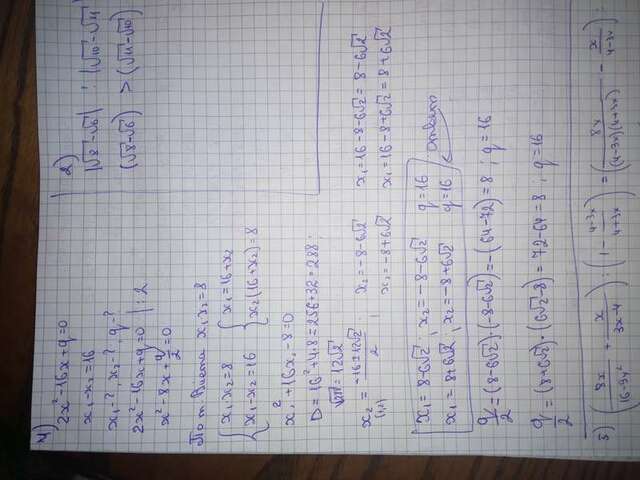 4)
2x² - 16x + q = 0
x₁ - x₂ = 16
x₁ - ?, x₂ - ?, q - ?
2x² - 16x + q = 0 | : 2
x² - 8x + q/2 = 0
По т. Виета x₁ x₂ = 8
{ x₁ · x₂ = 8 { x₁ = 16 + x₂
x₁ - x₂ = 16 x₂(16 + x₂) = 8
x² + 16x - 8 = 0
D = 16² + 4·8 = 256 + 32 = 288;
= 12√2
x₂ (1,2) = (-16 ± 12√2)/2 ; x₂ = -8 - 6√2 x₁ = 16 - 8 - 6√2 = 8 - 6√2
x₂ = -8 + 6√2 x₁ = 16 - 8 + 6√2 = 8 + 6√2
x₁ = 8 - 6√2 ; x₂ = -8 - 6√2 q = 16
x₁ = 8 + 6√2 ; x₂ = -8 + 6√2 q = 16
ответ
q/2 = (8 - 6√2) · (-8 - 6√2) = -(64 - 72) = 8 ; q = 16
q/2 = (8 + 6√2) · (6√2 - 8) = 72 - 64 = 8 ; q = 16
5) (8x/(16 - 9x²) + x/(3x - 4)) : (1 - (4 - 3x)/(4 + 3x)) = (8x/((4 - 3x)(4 + 3x)) - x/(4 - 3x)) :
2)
|√8 - √6| : |√10 - √11|
(√8 - √6) > (√11 - √10)